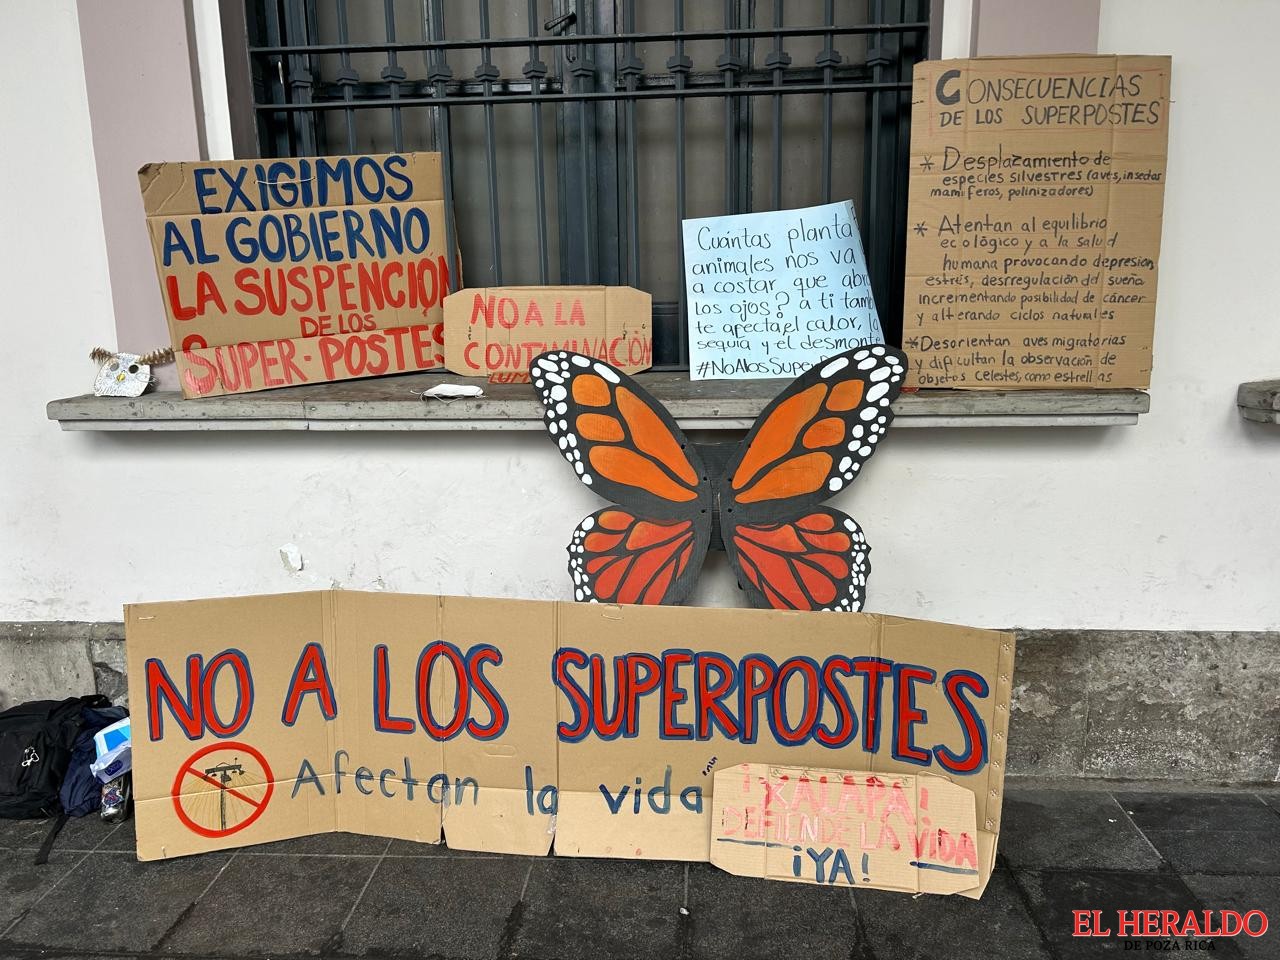 EXIGIMOS
AL GOBIERNO
LA SUSPENCIÓN
DE LOS
SUPER-POSTES
NO A LA
CONTIMINACIÓN
LUM
Cuántas planta
animales nos va
a costar que abr
los ojos? a ti tam
te afecta el calor, l
sequia y el desmonte
#NoAlosSuper
CONSECUENCIAS
DE LOS SUPERPOSTES
* Desplazamiento de
especies silvestres (aves, insectos
mamíferos, polinizadores)
* Atentan al equilibrio
ecológico y a la salud
humana provocando depresión,
estrés, desregulación del sueño
incrementando posibilidad de cáncer
y alterando ciclos naturales
* Desorientan aves migratorias
y dificultan la observación de
objetos celestes, como estrellas
NO A LOS SUPERPOSTES
Afectan la vida
¡XALAPA!
DEFIENDE LA VIDA
¡YA!
EL HERALDO
DE POZA RICA